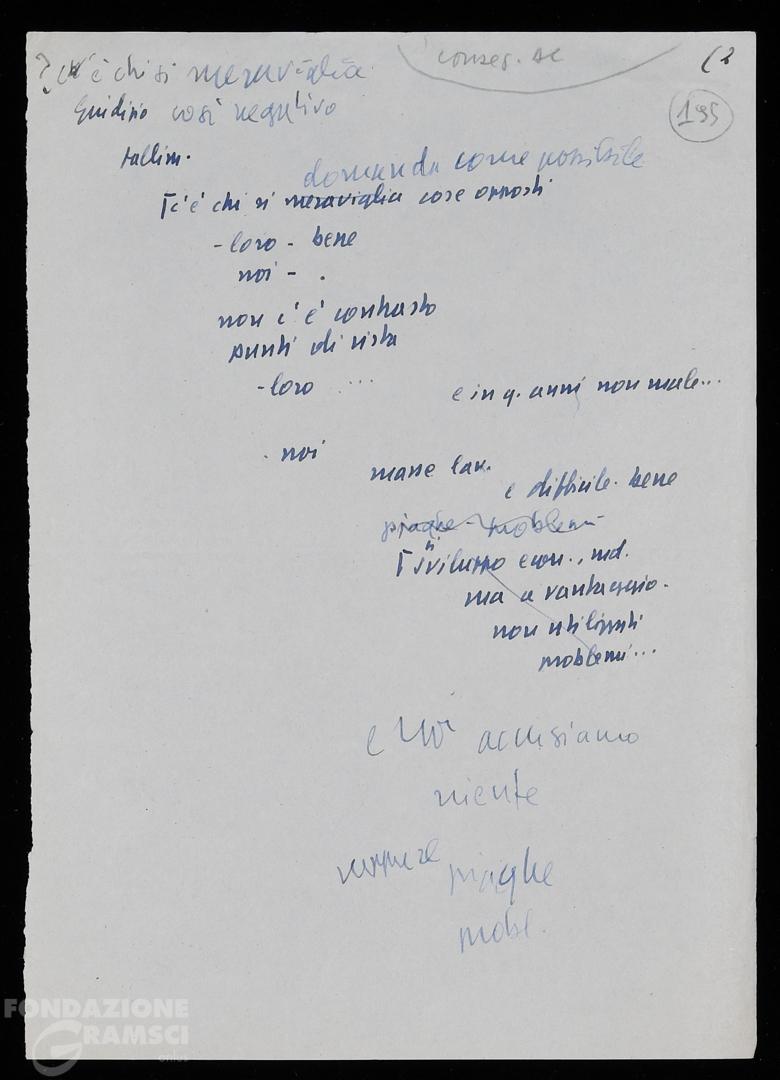 ? c'è chi si meraviglia
conseg. AC
(2
Giudizio così negativo
195
fallim.
domanda come possibile
[c'è chi si meraviglia cose opposti
- loro - bene
noi - .
non c'è contrasto
punti di vista
- loro ...
e in q. anni non male...
- noi
masse lav.
e difficile. bene
piaghe - problemi
[sviluppo econ., ind.
ma a vantaggio.
non utilizzati
problemi...
e noi accusiamo
niente
neppure piaghe
probl.
FONDAZIONE
GRAMSCI
onlus